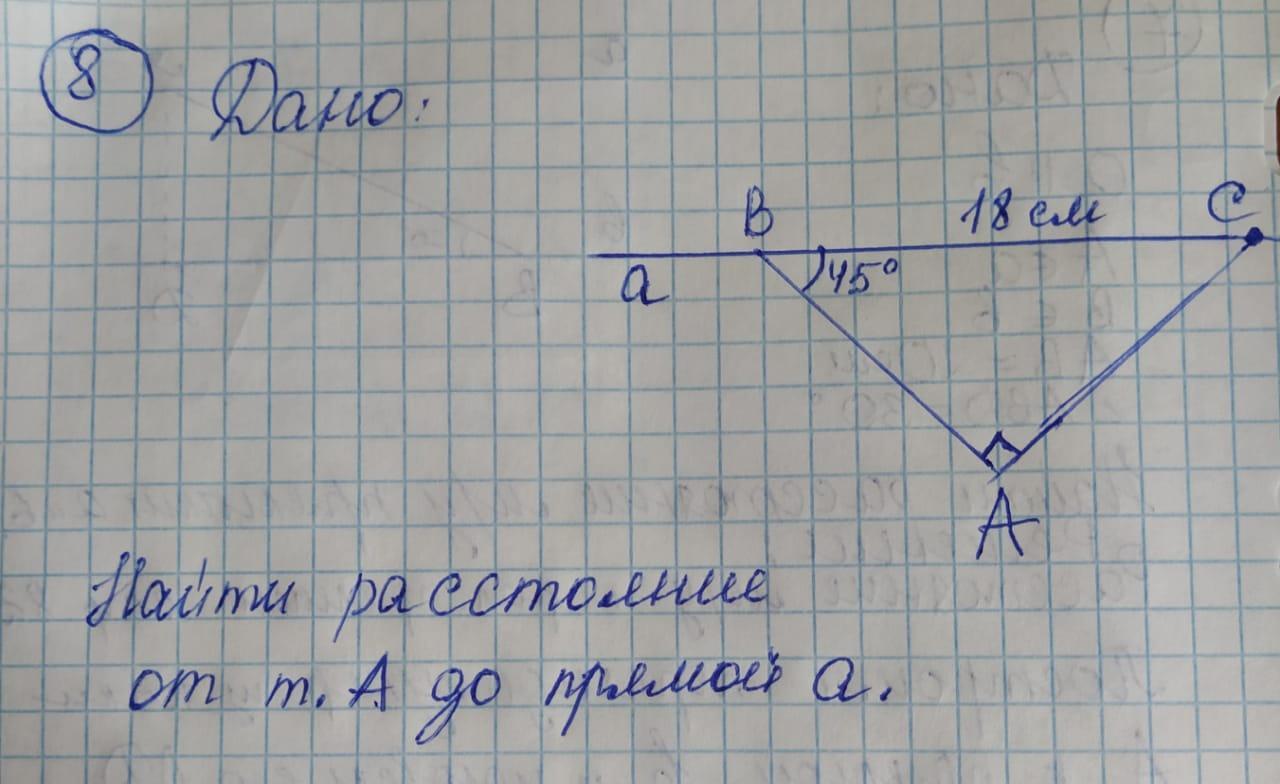 8 Дано:
B 18 см C
a 45°
A
Найти расстояние
от т. А до прямой а.